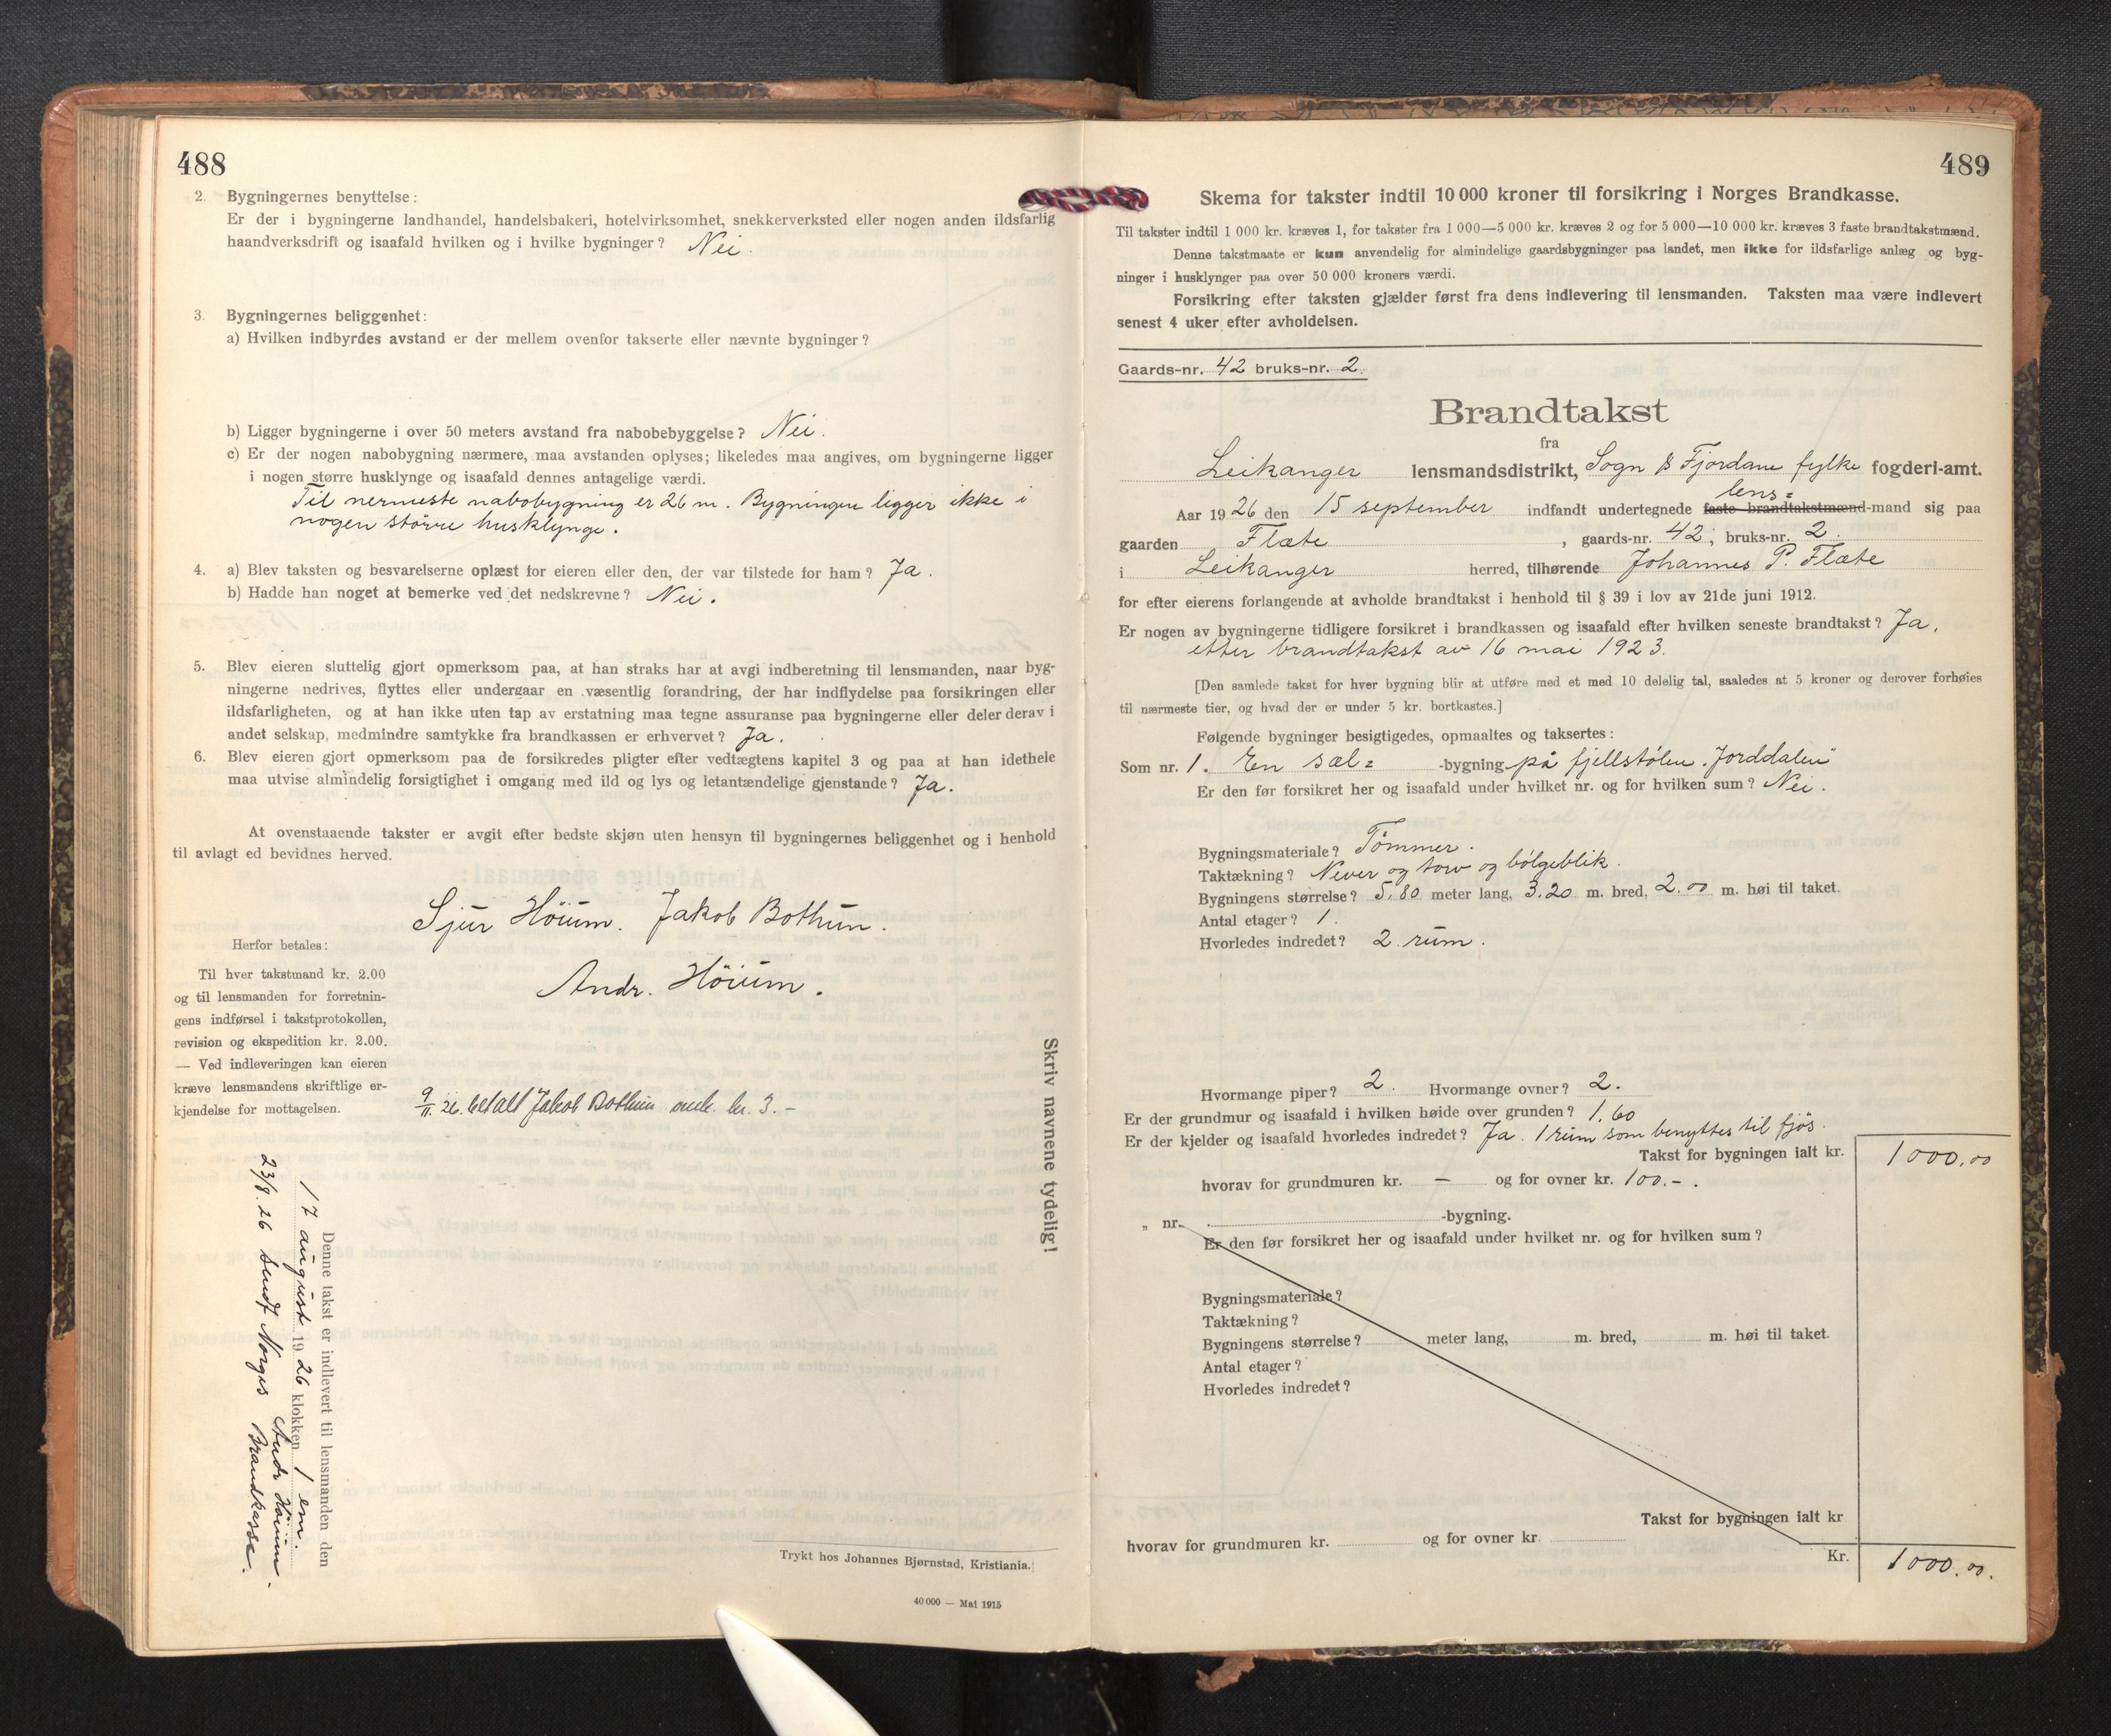 488
2. Bygningernes benyttelse:
Er der i bygningerne landhandel, handelsbakeri, hotelvirksomhet, snekkerverksted eller nogen anden ildsfarlig
haandverksdrift og isaafald hvilken og i hvilke bygninger? Nei.
3. Bygningernes beliggenhet:
a) Hvilken indbyrdes avstand er der mellem ovenfor takserte eller nævnte bygninger?
b) Ligger bygningerne i over 50 meters avstand fra nabobebyggelse? Nei.
c) Er der nogen nabobygning nærmere, maa avstanden oplyses; likeledes maa angives, om bygningerne ligger
i nogen større husklynge og isaafald dennes antagelige værdi.
Til nermeste nabobygning er 26 m. Bygningen ligger ikke i
nogen större husklynge.
4. a) Blev taksten og besvarelserne oplæst for eieren eller den, der var tilstede for ham? Ja.
b) Hadde han noget at bemerke ved det nedskrevne? Nei.
5. Blev eieren sluttelig gjort opmerksom paa, at han straks har at avgi indberetning til lensmanden, naar byg-
ningerne nedrives, flyttes eller undergaar en væsentlig forandring, der har indflydelse paa forsikringen eller
ildsfarligheten, og at han ikke uten tap av erstatning maa tegne assuranse paa bygningerne eller deler derav i
andet selskap, medmindre samtykke fra brandkassen er erhvervet? Ja.
6. Blev eieren gjort opmerksom paa de forsikredes pligter efter vedtægtens kapitel 3 og paa at han idethele
maa utvise almindelig forsigtighet i omgang med ild og lys og letantændelige gjenstande? Ja.
At ovenstaaende takster er avgit efter bedste skjøn uten hensyn til bygningernes beliggenhet og i henhold
til avlagt ed bevidnes herved.
Sjur Höium. Jakob Bothun.
Andr. Höium.
Herfor betales:
Til hver takstmand kr. 2.00
og til lensmanden for forretnin-
gens indførsel i takstprotokollen,
revision og ekspedition kr. 2.00.
— Ved indleveringen kan eieren
kræve lensmandens skriftlige er-
kjendelse for mottagelsen.
9/11.26. betalt Jakob Bothun kr. 3.-
Skriv navnene tydelig!
Denne takst er indlevert til lensmanden den
17 august 1926 klokken 1 em.
Andr Höium.
23/8.26 sendt Norges Brandkasse.
Trykt hos Johannes Bjørnstad, Kristiania.
40 000 — Mai 1915
489
Skema for takster indtil 10 000 kroner til forsikring i Norges Brandkasse.
Til takster indtil 1 000 kr. kræves 1, for takster fra 1 000—5 000 kr. kræves 2 og for 5 000—10 000 kr. kræves 3 faste brandtakstmænd.
Denne takstmaate er kun anvendelig for almindelige gaardsbygninger paa landet, men ikke for ildsfarlige anlæg og byg-
ninger i husklynger paa over 50 000 kroners værdi.
Forsikring efter taksten gjælder først fra dens indlevering til lensmanden. Taksten maa være indlevert
senest 4 uker efter avholdelsen.
Gaards-nr. 42 bruks-nr. 2.
Brandtakst
fra
Leikanger lensmandsdistrikt, Sogn & Fjordane fylke fogderi-amt.
lens=
Aar 1926 den 15 september indfandt undertegnede faste brandtakstmænd-mand sig paa
gaarden Flæte, gaards-nr. 42, bruks-nr. 2.
i Leikanger herred, tilhørende Johannes P. Flæte
for efter eierens forlangende at avholde brandtakst i henhold til § 39 i lov av 21de juni 1912.
Er nogen av bygningerne tidligere forsikret i brandkassen og isaafald efter hvilken seneste brandtakst? Ja,
etter brandtakst av 16 mai 1923.
[Den samlede takst for hver bygning blir at utføre med et med 10 delelig tal, saaledes at 5 kroner og derover forhøies
til nærmeste tier, og hvad der er under 5 kr. bortkastes.]
Følgende bygninger besigtigedes, opmaaltes og taksertes:
Som nr. 1. En sæl= -bygning på fjellstölen „Jorddalen"
Er den før forsikret her og isaafald under hvilket nr. og for hvilken sum? Nei.
Bygningsmateriale? Tömmer.
Taktækning? Never og torv og bölgeblik.
Bygningens størrelse? 5,80 meter lang, 3,20 m. bred, 2.00 m. høi til taket.
Antal etager? 1.
Hvorledes indredet? 2 rum.
Hvormange piper? 2. Hvormange ovner? 2.
Er der grundmur og isaafald i hvilken høide over grunden? 1,60
Er der kjelder og isaafald hvorledes indredet? Ja. 1 rum som benyttes til fjös.
Takst for bygningen ialt kr. 1000.00
hvorav for grundmuren kr. — og for ovner kr. 100.-.
„ nr. -bygning.
Er den før forsikret her og isaafald under hvilket nr. og for hvilken sum?
Bygningsmateriale?
Taktækning?
Bygningens størrelse? meter lang, m. bred, m. høi til taket.
Antal etager?
Hvorledes indredet?
Takst for bygningen ialt kr
hvorav for grundmuren kr. og for ovner kr.
Kr. 1000.00.